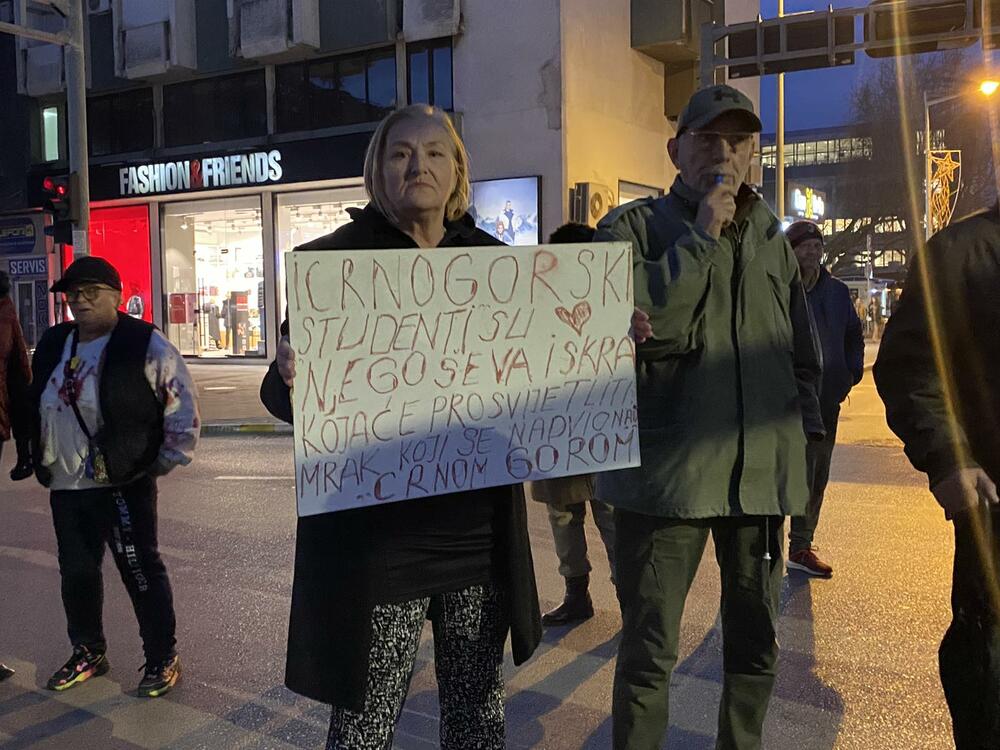 FASHION&FRIENDS
SERVIS
I CRNOGORSKI
STUDENTI SU
NJEGOŠEVA iSKRA
KOJA ĆE PROSVIJETLITI
MRAK KOJI SE NADVIO NAD
CRNOM GOROM